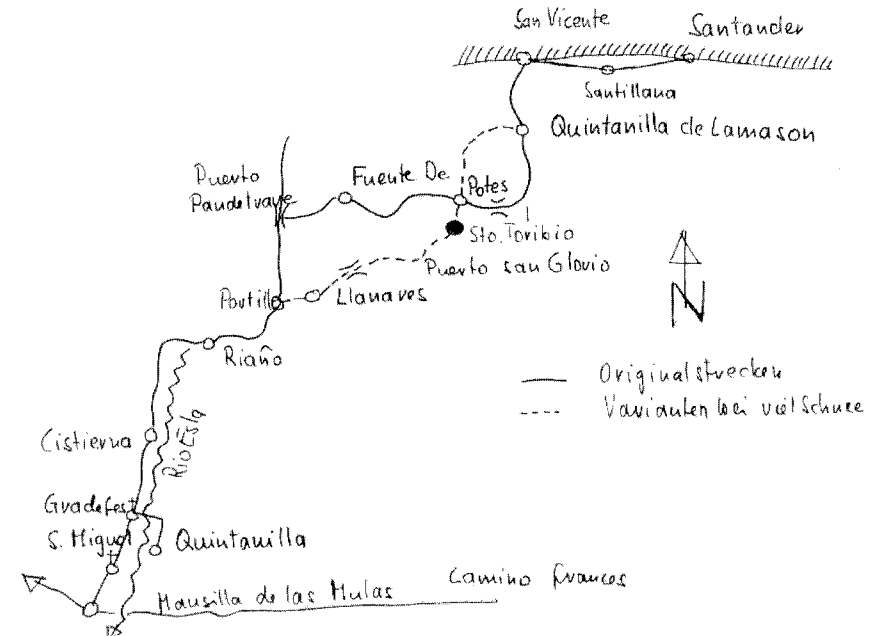 San Vicente
Santander
Santillana
Quintanilla de Lamason
Puerto
Pandetrave
Fuente De
Potes
Sto. Toribio
Puerto san Glorio
Portillo
Llanaves
N
Riaño
Originalstrecken
Varianten bei viel Schnee
Cistierna
Rio Esla
Gradefest
S. Migual
Quintanilla
Mansilla de las Mulas
Camino frances